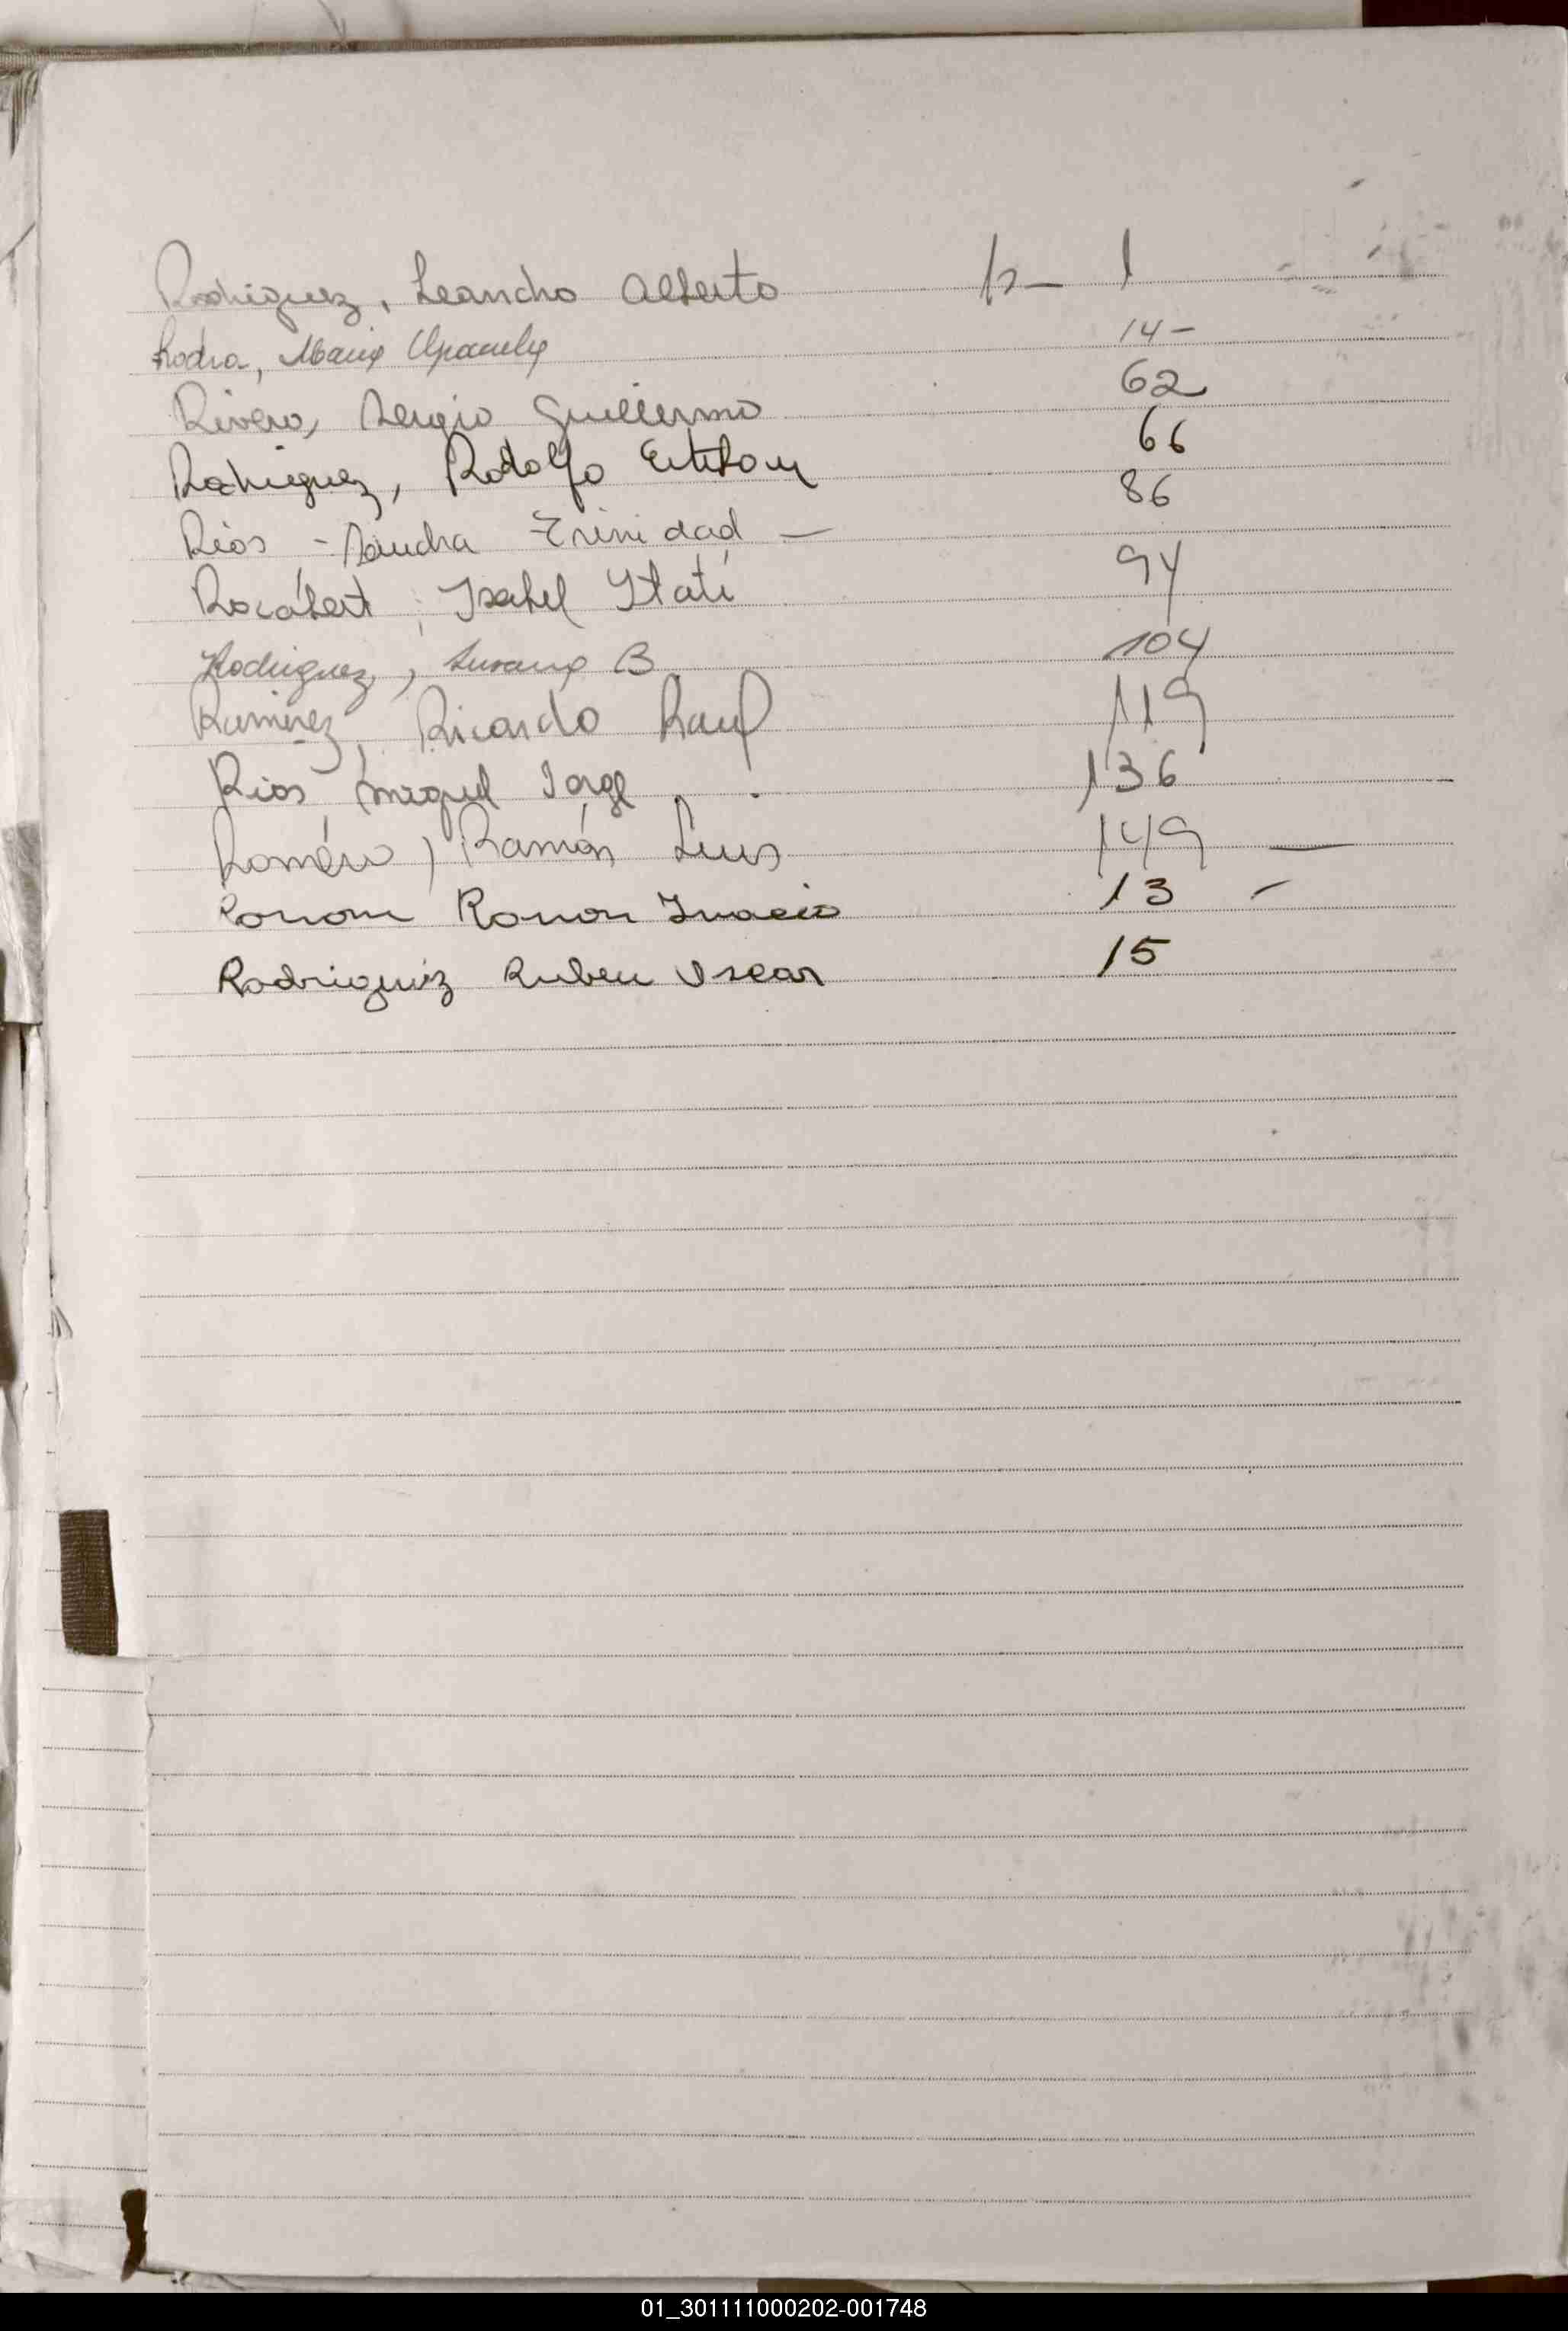 Rodriguez, Leandro Alberto 1
Rodra, Maria 14-
Rivero, Sergio Guillermo 62
Rodriguez, Rodolfo Esteban 66
Ríos - Sandra Trinidad — 86
Rocábert, Isabel Itatí 94
Rodriguez, Susana B 104
Ramirez, Ricardo Raul 119
Rios, Miguel Jorge 136
Roméro, Ramón Luis 149 —
Ramon 13 -
Rodriguez Ruben Oscar 15
01_301111000202-001748